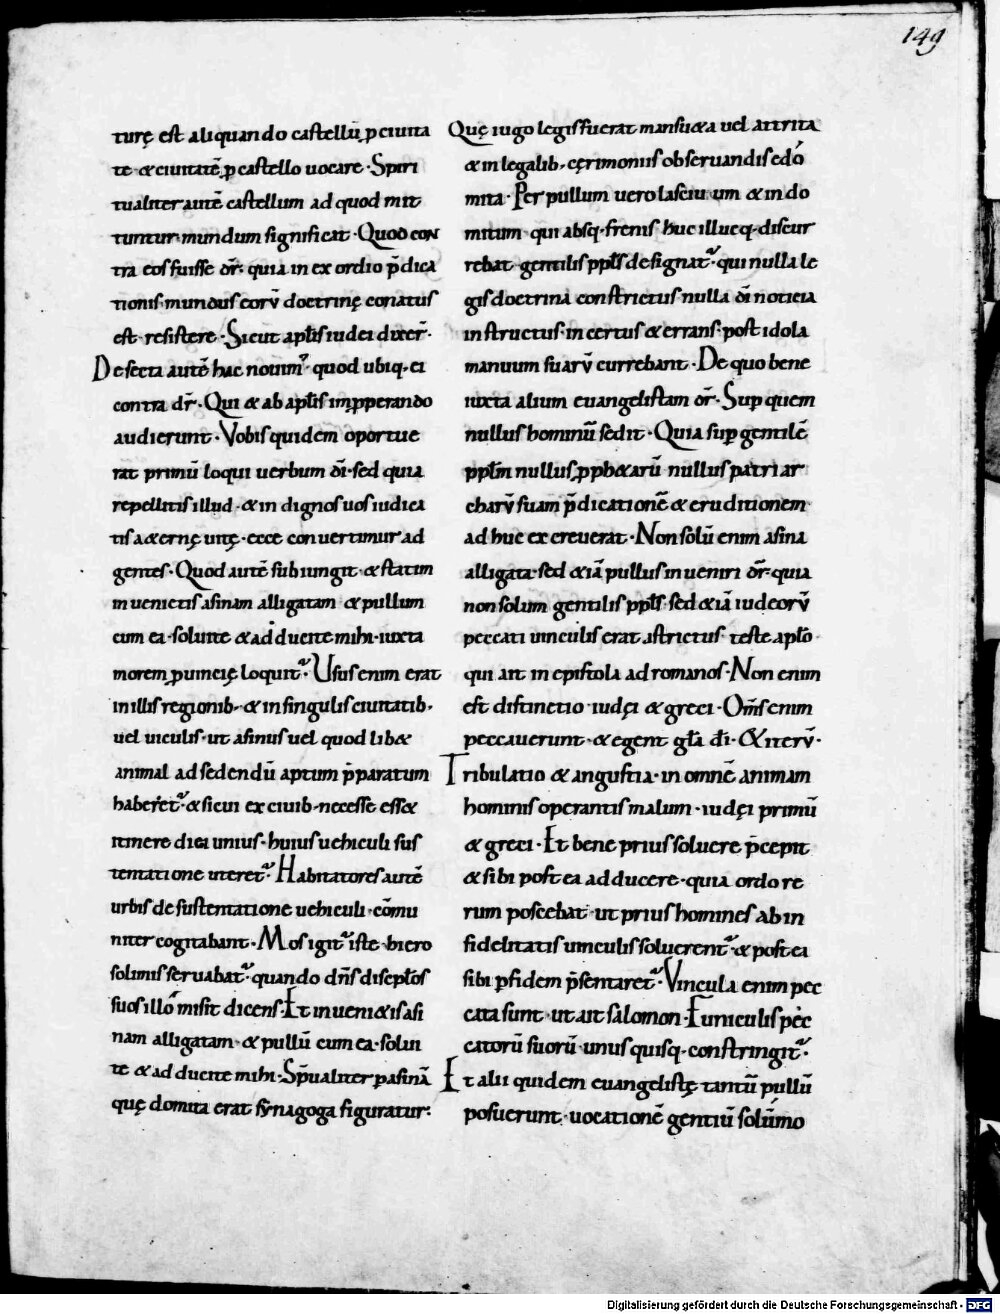 149
turę est aliquando castellū ꝓ ciuita
te & ciuitatē ꝓ castello uocare. Spiri
tualiter autē castellum ad quod mit
tuntur mundum significat. Quod con
tra eos fuisse dr̄. quia in exordio p̄dica
tionis mundus eorū doctrinę conatus
est resistere. Sicut apl̄is iudei dixer̄.
De secta autē hac nouim᷒ quod ubiq; ei
contradr̄. Qui & ab apl̄is imꝓperando
audierunt. Vobis quidem oportue
rat primū loqui uerbum dī. sed quia
repellitis illud. & indignos uos iudica
tis aeternę uitę. ecce conuertimur ad
gentes. Quod autē subiungit. & statim
inuenietis asinam alligatam & pullum
cum ea. soluite & adducite mihi. iuxta
morem ꝓuincię loquit᷑. Usus enim erat
in illis regionib; & in singulis ciuitatib;
uel uiculis. ut asinus uel quodlib&
animal ad sedendū aptum p̄paratum
haberet᷑. & si cui ex ciuib; necesse ess&
itinere diei unius. huius uehiculi sus
tentatione uteret᷑. Habitatores autē
urbis de sustentatione uehiculi cōmu
niter cogitabant. Mos igit᷑ iste hiero
solimis seruabat᷑. quando dn̄s discipl̄os
suos illō misit dicens. Et inueni&is asi
nam alligatam & pullū cum ea. solui
te & adducite mihi. Sp̄ualiter ꝑ asinā
quę domita erat synagoga figuratur.
Quę iugo legis fuerat mansu&a uel attrita
& in legalib; cęrimoniis obseruandis edo
mita. Per pullum uero lasciuum & indo
mitum qui absq; frenis huc illucq; discur
rebat gentilis ppl̄s designat᷑. qui nulla le
gis doctrina constrictus nulla dī noticia
instructus. incertus & errans. post idola
manuum suarū currebant. De quo bene
iuxta alium euangelistam dr̄. Sup quem
nullus hominū sedit. Quia sup gentilē
ppl̄m nullus ꝓph&arū nullus patriar
charū suam p̄dicationē & eruditionem
adhuc excreuerat. Non solū enim asina
alligata sed &iā pullus inueniri dr̄. quia
non solum gentilis ppl̄s. sed &iā iudeorū
peccati uinculis erat astrictus. teste aplō
qui ait in epistola ad romanos. Non enim
est distinctio iudęi & greci. Om̄s enim
peccauerunt. & egent gl̄a dī. & iterū.
Tribulatio & angustia. in omnē animam
hominis operantis malum. iudęi primū
& greci. Et bene prius soluere p̄cepit
& sibi postea adducere. quia ordo re
rum poscebat ut prius homines ab in
fidelitatis uinculis soluerent᷑. & postea
sibi ꝑ fidem p̄sentaret᷑. Vincula enim pec
cata sunt. ut ait salomon. Funiculis pec
catorū suorū unus quisq; constringit᷑.
Et alii quidem euangelistę tantū pullū
posuerunt. uocationē gentiū solūmo
Digitalisierung gefördert durch die Deutsche Forschungsgemeinschaft - DFG